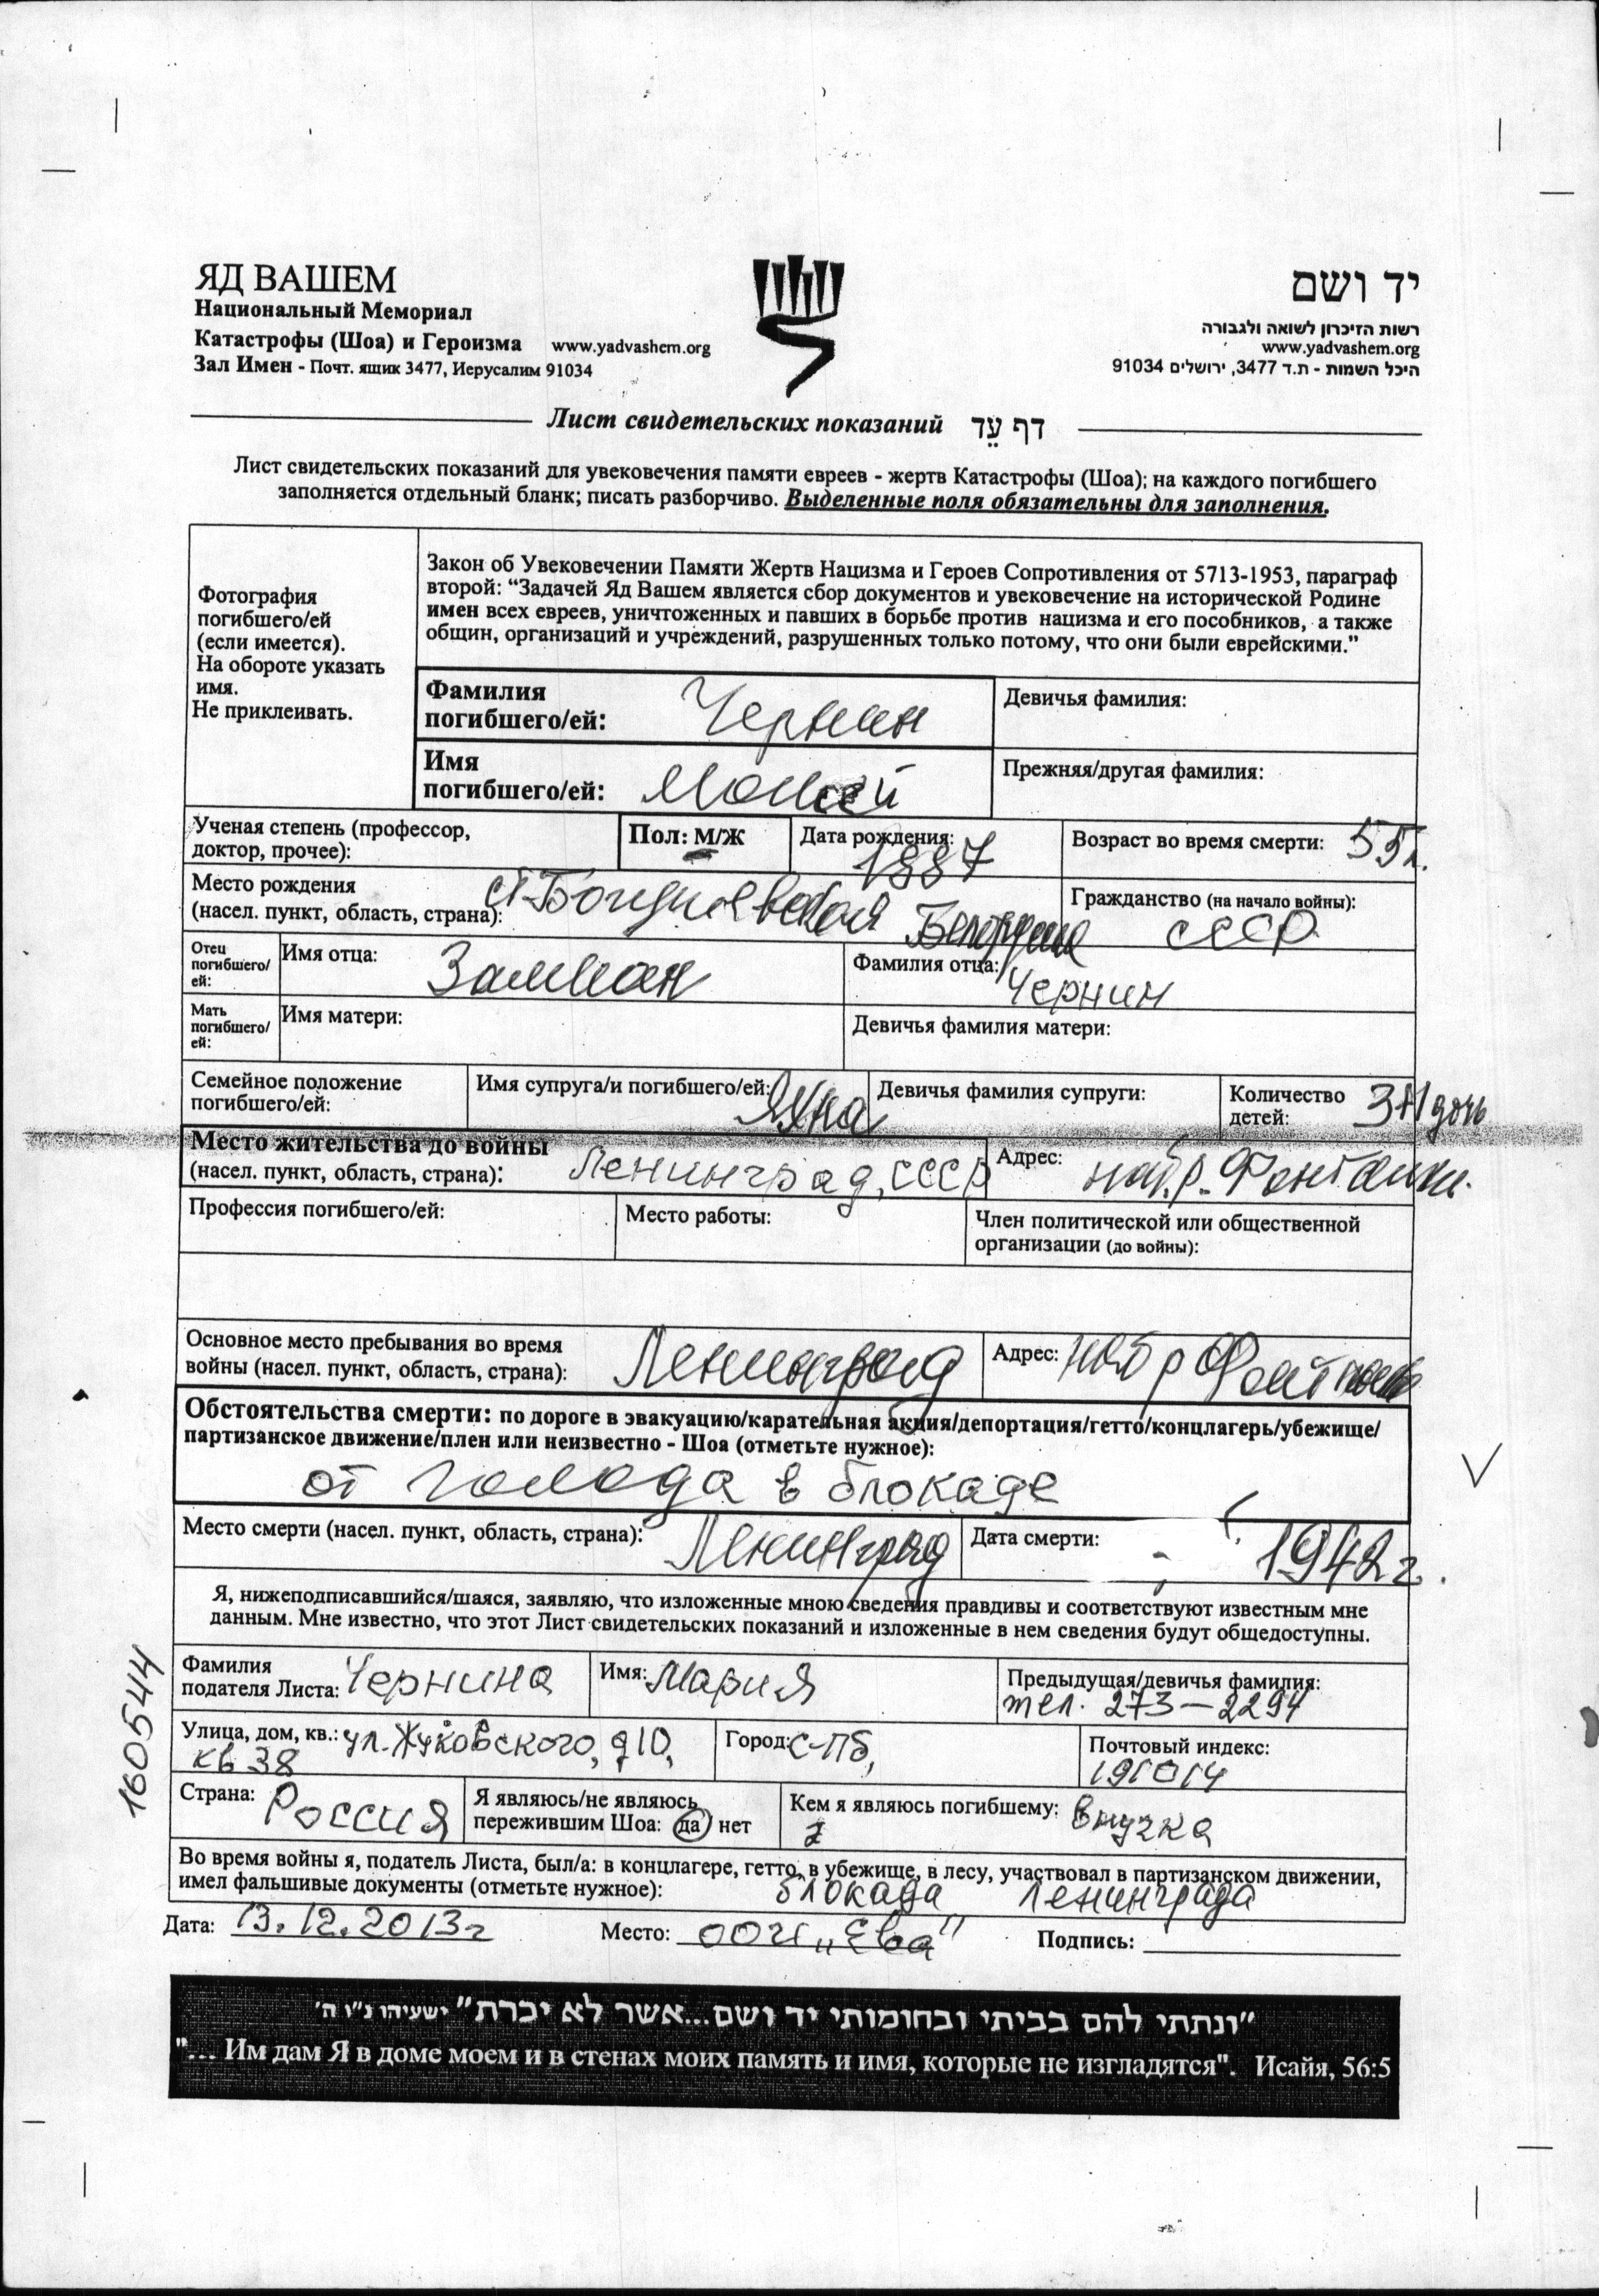 ЯД ВАШЕМ
Национальный Мемориал
Катастрофы (Шоа) и Героизма www.yadvashem.org
Зал Имен - Почт. ящик 3477, Иерусалим 91034
יד ושם
רשות הזיכרון לשואה ולגבורה
www.yadvashem.org
היכל השמות - ת.ד 3477, ירושלים 91034
Лист свидетельских показаний דף עֵד
Лист свидетельских показаний для увековечения памяти евреев - жертв Катастрофы (Шоа); на каждого погибшего
заполняется отдельный бланк; писать разборчиво. Выделенные поля обязательны для заполнения.
Фотография
погибшего/ей
(если имеется).
На обороте указать
имя.
Не приклеивать.
Закон об Увековечении Памяти Жертв Нацизма и Героев Сопротивления от 5713-1953, параграф
второй: “Задачей Яд Вашем является сбор документов и увековечение на исторической Родине
имен всех евреев, уничтоженных и павших в борьбе против нацизма и его пособников, а также
общин, организаций и учреждений, разрушенных только потому, что они были еврейскими.”
Фамилия
погибшего/ей: Чернин
Девичья фамилия:
Имя
погибшего/ей: Моисей
Прежняя/другая фамилия:
Ученая степень (профессор,
доктор, прочее):
Пол: М/Ж
Дата рождения: 1887
Возраст во время смерти: 55 л.
Место рождения
(насел. пункт, область, страна):
Гражданство (на начало войны):
СССР
Отец
погибшего/
ей:
Имя отца: Залман
Фамилия отца: Чернин
Мать
погибшего/
ей:
Имя матери:
Девичья фамилия матери:
Семейное положение
погибшего/ей:
Имя супруга/и погибшего/ей:
Девичья фамилия супруги:
Количество
детей: дочь
Место жительства до войны
(насел. пункт, область, страна): Ленинград, СССР
Адрес: наб. р. Фонтанки
Профессия погибшего/ей:
Место работы:
Член политической или общественной
организации (до войны):
Основное место пребывания во время
войны (насел. пункт, область, страна): Ленинград
Адрес: наб р Фонтанки
Обстоятельства смерти: по дороге в эвакуацию/карательная акция/депортация/гетто/концлагерь/убежище/
партизанское движение/плен или неизвестно - Шоа (отметьте нужное):
от голода в блокаде
Место смерти (насел. пункт, область, страна): Ленинград
Дата смерти: 1942 г.
Я, нижеподписавшийся/шаяся, заявляю, что изложенные мною сведения правдивы и соответствуют известным мне
данным. Мне известно, что этот Лист свидетельских показаний и изложенные в нем сведения будут общедоступны.
Фамилия
подателя Листа: Чернина
Имя: Мария
Предыдущая/девичья фамилия:
тел. 273-2294
Улица, дом, кв.: ул. Жуковского, д10,
кв 38
Город: С-Пб,
Почтовый индекс:
191014
Страна: Россия
Я являюсь/не являюсь
пережившим Шоа: да нет
Кем я являюсь погибшему: внучка
Во время войны я, податель Листа, был/а: в концлагере, гетто, в убежище, в лесу, участвовал в партизанском движении,
имел фальшивые документы (отметьте нужное): блокада Ленинграда
Дата: 13.12.2013г
Место: "Ева"
Подпись:
160544
"ונתתי להם בביתי ובחומותי יד ושם...אשר לא יכרת" ישעיהו נ"ו ה'
"... Им дам Я в доме моем и в стенах моих память и имя, которые не изгладятся". Исайя, 56:5